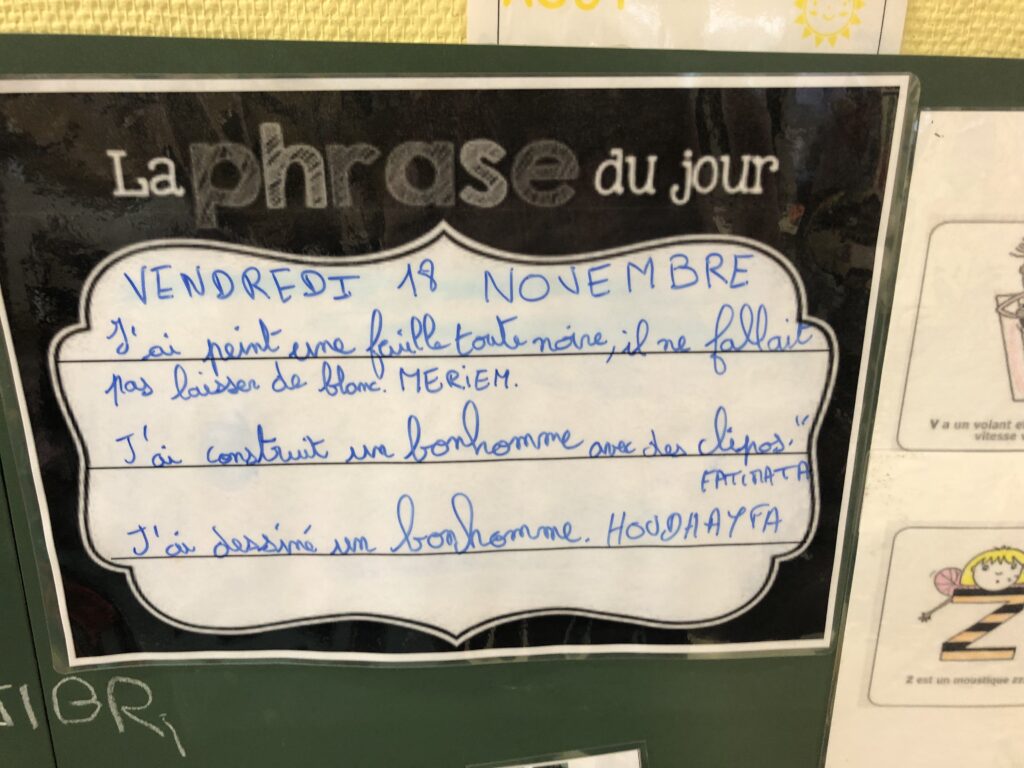 AOUT
La phrase du jour
VENDREDI 18 NOVEMBRE
J'ai peint une feuille toute noire, il ne fallait
pas laisser de blanc. MERIEM.
J'ai construit un bonhomme avec des clipos."
FATIMATA
J'ai dessiné un bonhomme. HOUDHAYFA
V a un volant et
vitesse
Z
Z est un moustique